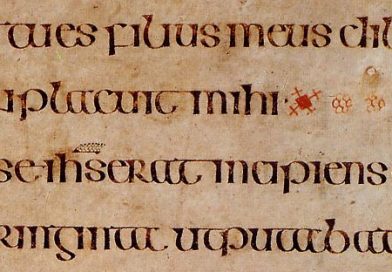 tues filius meus dil
nplacuit mihi
se ihs erat incipiens
riginta utputabat